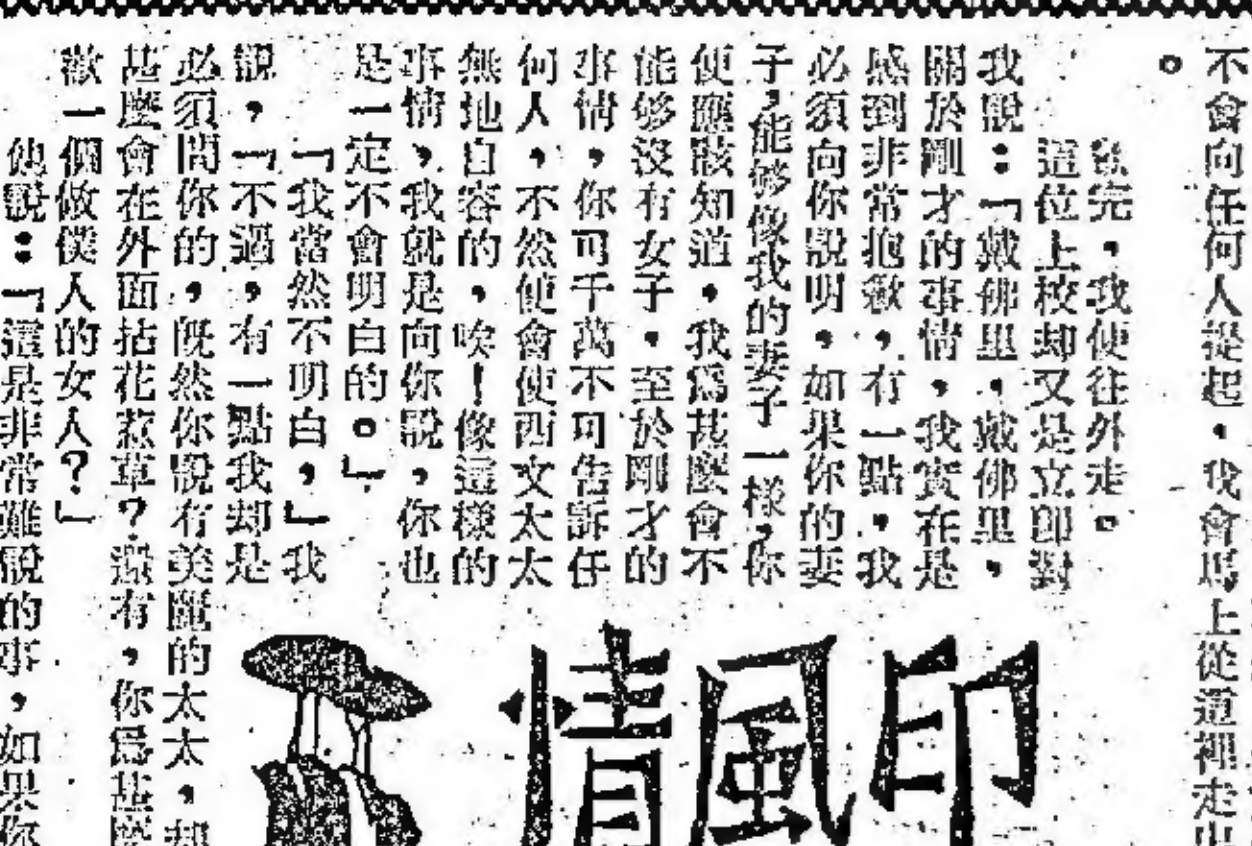 不會向任何人提起，我會馬上從這裡走出
。
說完，我便往外走。
這位上校却又是立卽對
我說：「戴佛里，戴佛里，
關於剛才的事情，我實在是
感到非常抱歉，有一點，我
必須向你說明，如果你的妻
子，能够像我的妻子一樣，你
便應該知道，我爲甚麼會不
能够沒有女子，至於剛才的
事情，你可千萬不可告訴任
何人，不然便會使西文太太
無地自容的，唉！像這樣的
事情，我就是向你說，你也
是一定不會明白的。」
「我當然不明白，」我
說，「不過，有一點我却是
必須問你的，旣然你說有美麗的太太，却
甚麼會在外面拈花惹草？還有，你爲甚麼
歡一個做僕人的女人？」
他說：「這是非常難說的事，如果你
印風情